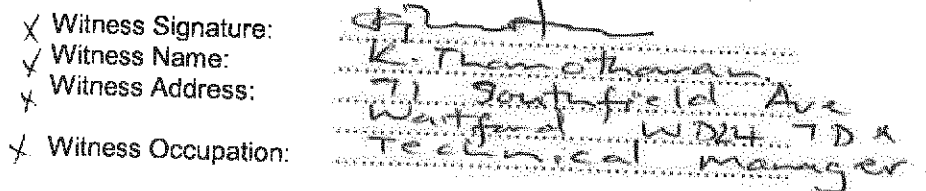 Witness Signature:
Witness Name: K. Thamotharan
Witness Address: 71 Southfield Ave
Watford WD24 7DX
Witness Occupation: Technical Manager